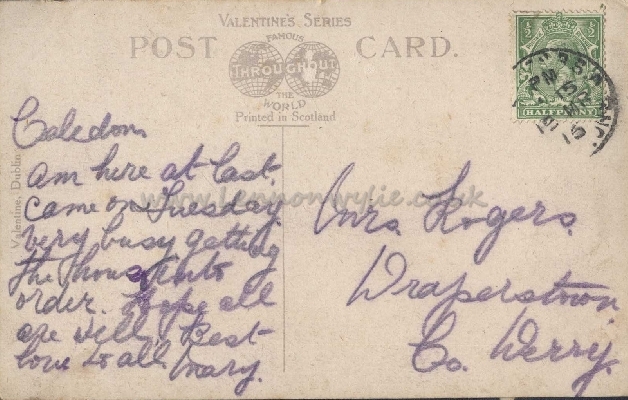 VALENTINE'S SERIES
FAMOUS
POST CARD.
THROUGHOUT
THE
WORLD
Printed in Scotland
½ ½
HALFPENNY
Valentine, Dublin
www.Lennonwylie.co.uk
Caledon
am here at last.
Came on Tuesday
Very busy getting
the house into
order. Hope all
are well. Best
love to all Mary.
Mrs. Rogers.
Draperstown
Co. Derry.